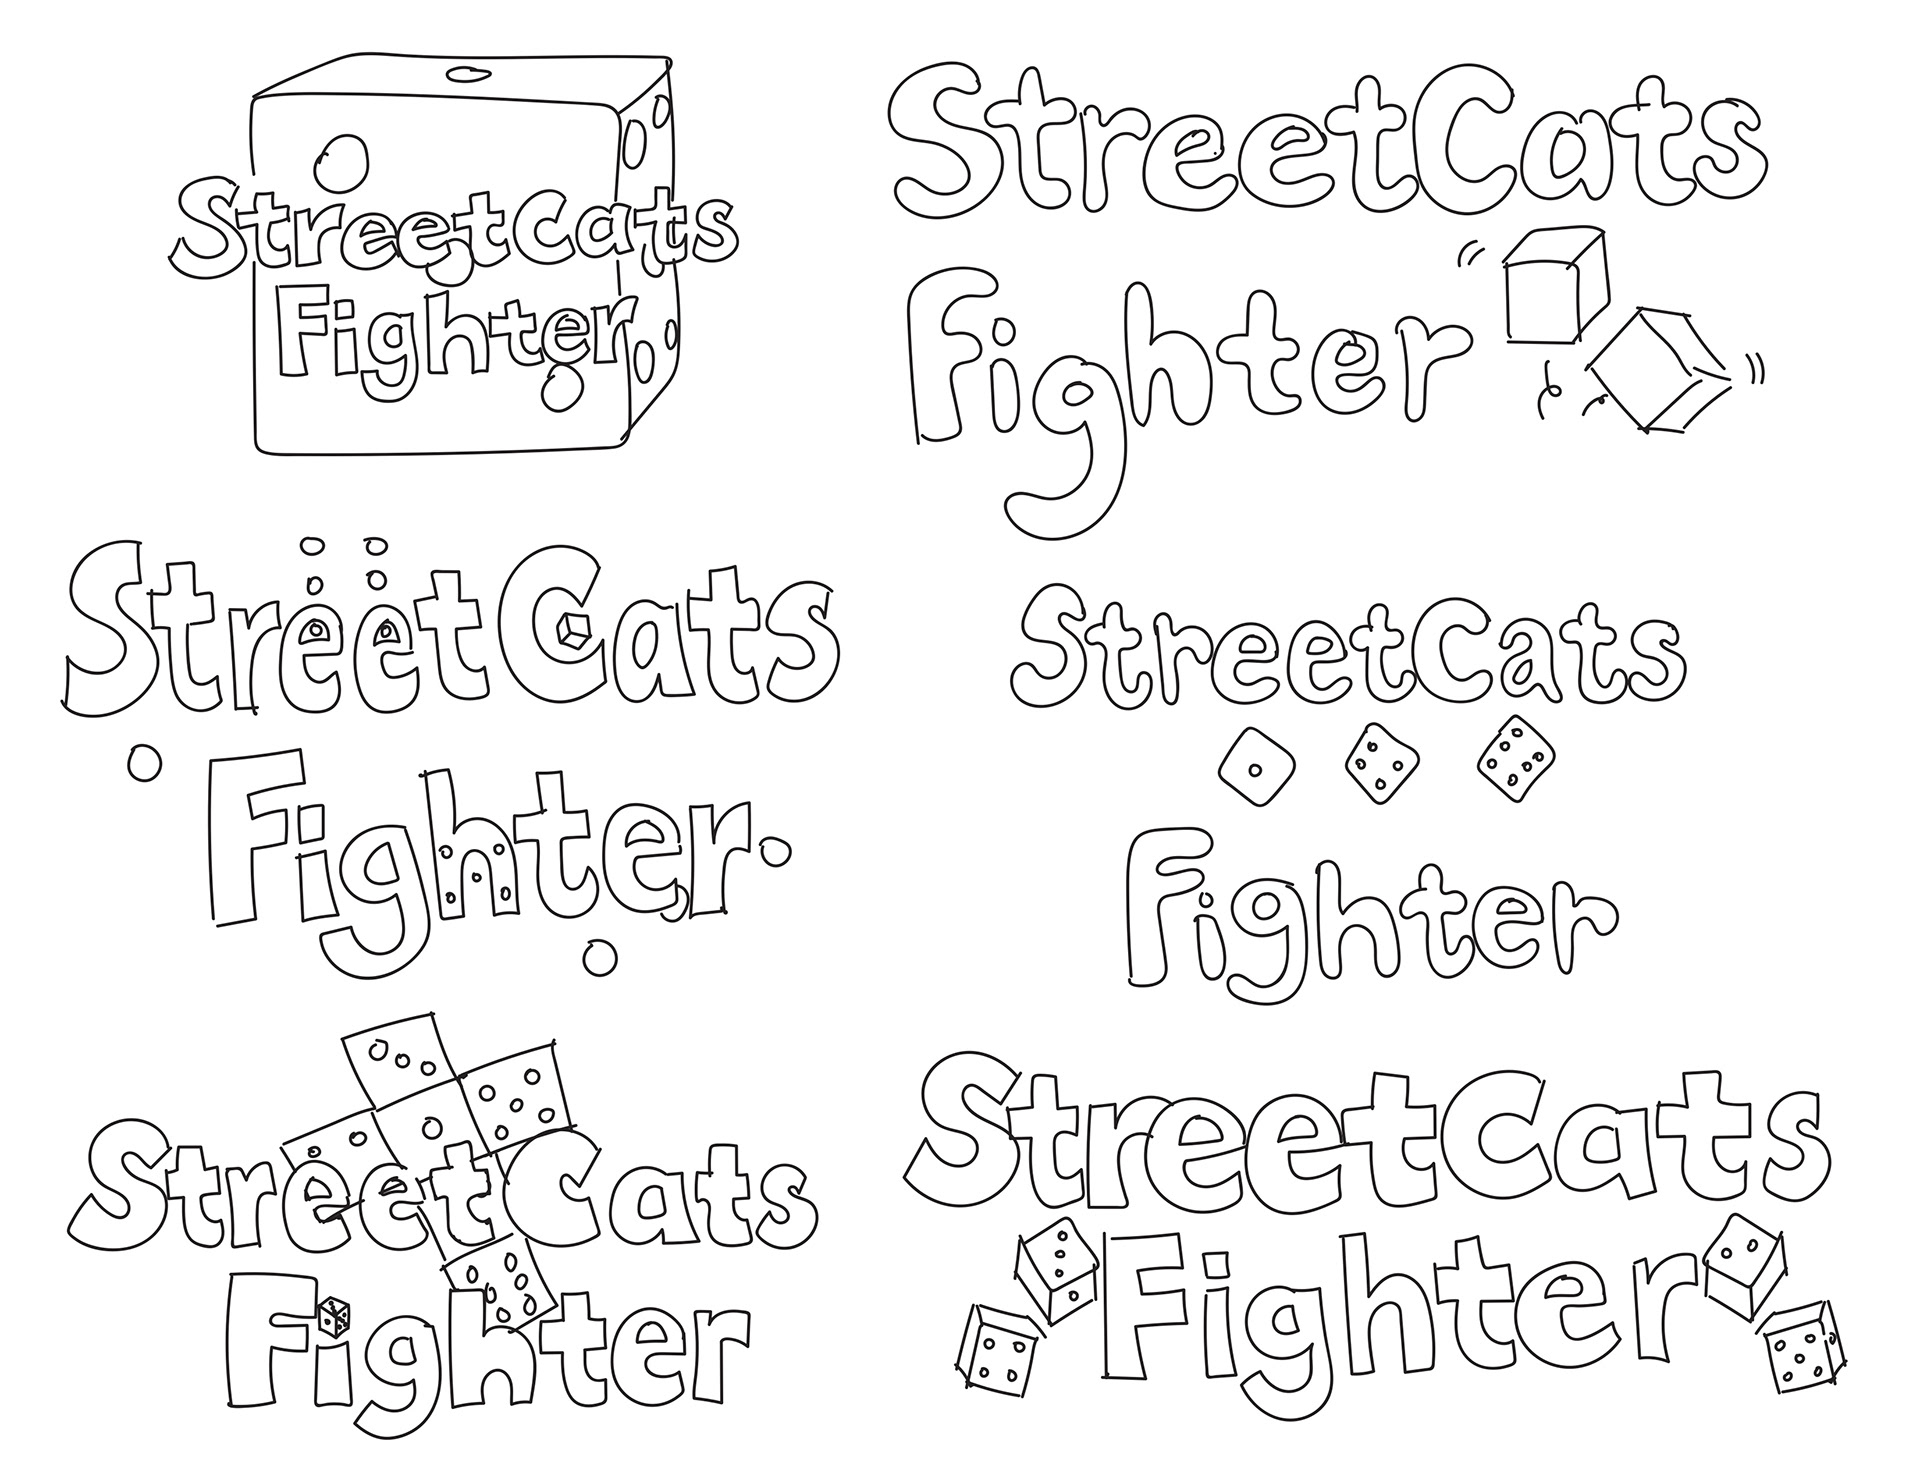 StreetCats
Fighter
StreetCats
Fighter
StreetCats
Fighter
StreetCats
Fighter
StreetCats
Fighter
StreetCats
Fighter